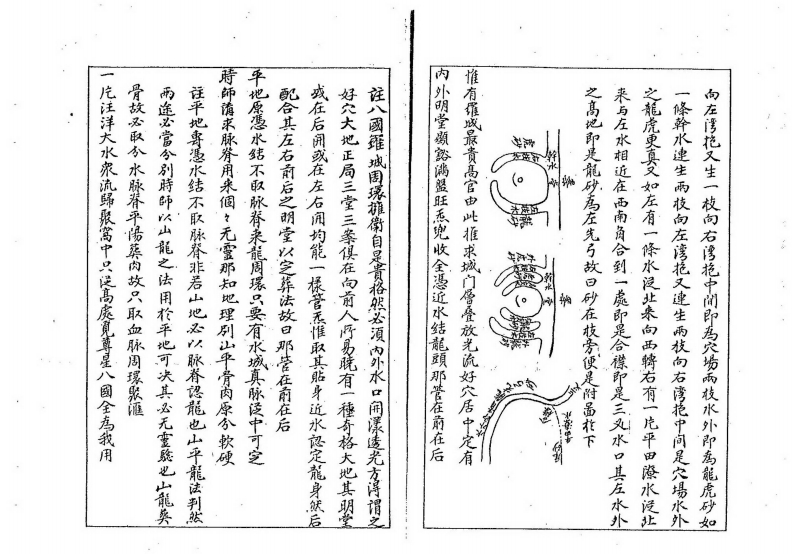 向左湾抱又生一枝向右湾抱中間即為穴場两枝水外即為龍虎砂如
一條幹水連生两枝向左湾抱又連生两枝向右湾抱中間是穴場水外
之龍虎更真又如左有一條水泛北来向西轉右有一片平田隙水泛北
来与左水相近在西南角合到一處即是合襟即是三叉水口其左水外
之高地即是龍砂為左先弓故曰砂在枝旁便是附啚於下
惟有羅城最貴高官由此推求城门層叠放光流好穴居中定有
内外明堂顯谿滿盤旺炁兜收全憑近水結龍頭那管在前在后
註八國羅城周環擁衛自是貴格然必須内外水口開漾透光方得謂之
好穴大地正局三堂三案俱在向前人所易曉有一種奇格大地其明堂
或在后開或在左右開均能一樣管炁惟取其貼身近水認定龍身然后
配合其左右前后之明堂以定葬法故曰那管在前在后
平地原憑水結不取脉脊来龍周環只要有水城真脉泛中可定
時師講求脉脊用来個々无靈那知地理别山平骨肉原分軟硬
註平地專憑水結不取脉脊非若山地必以脉脊認龍也山平龍法判然
两途必當分别時師以山龍之法用於平地可决其必无靈驗也山龍葬
骨故必取分水脉脊平陽葬肉故只取血脉周環聚滙
一片汪洋大水衆流歸聚窝中只泛高處覓尊星八國全為我用